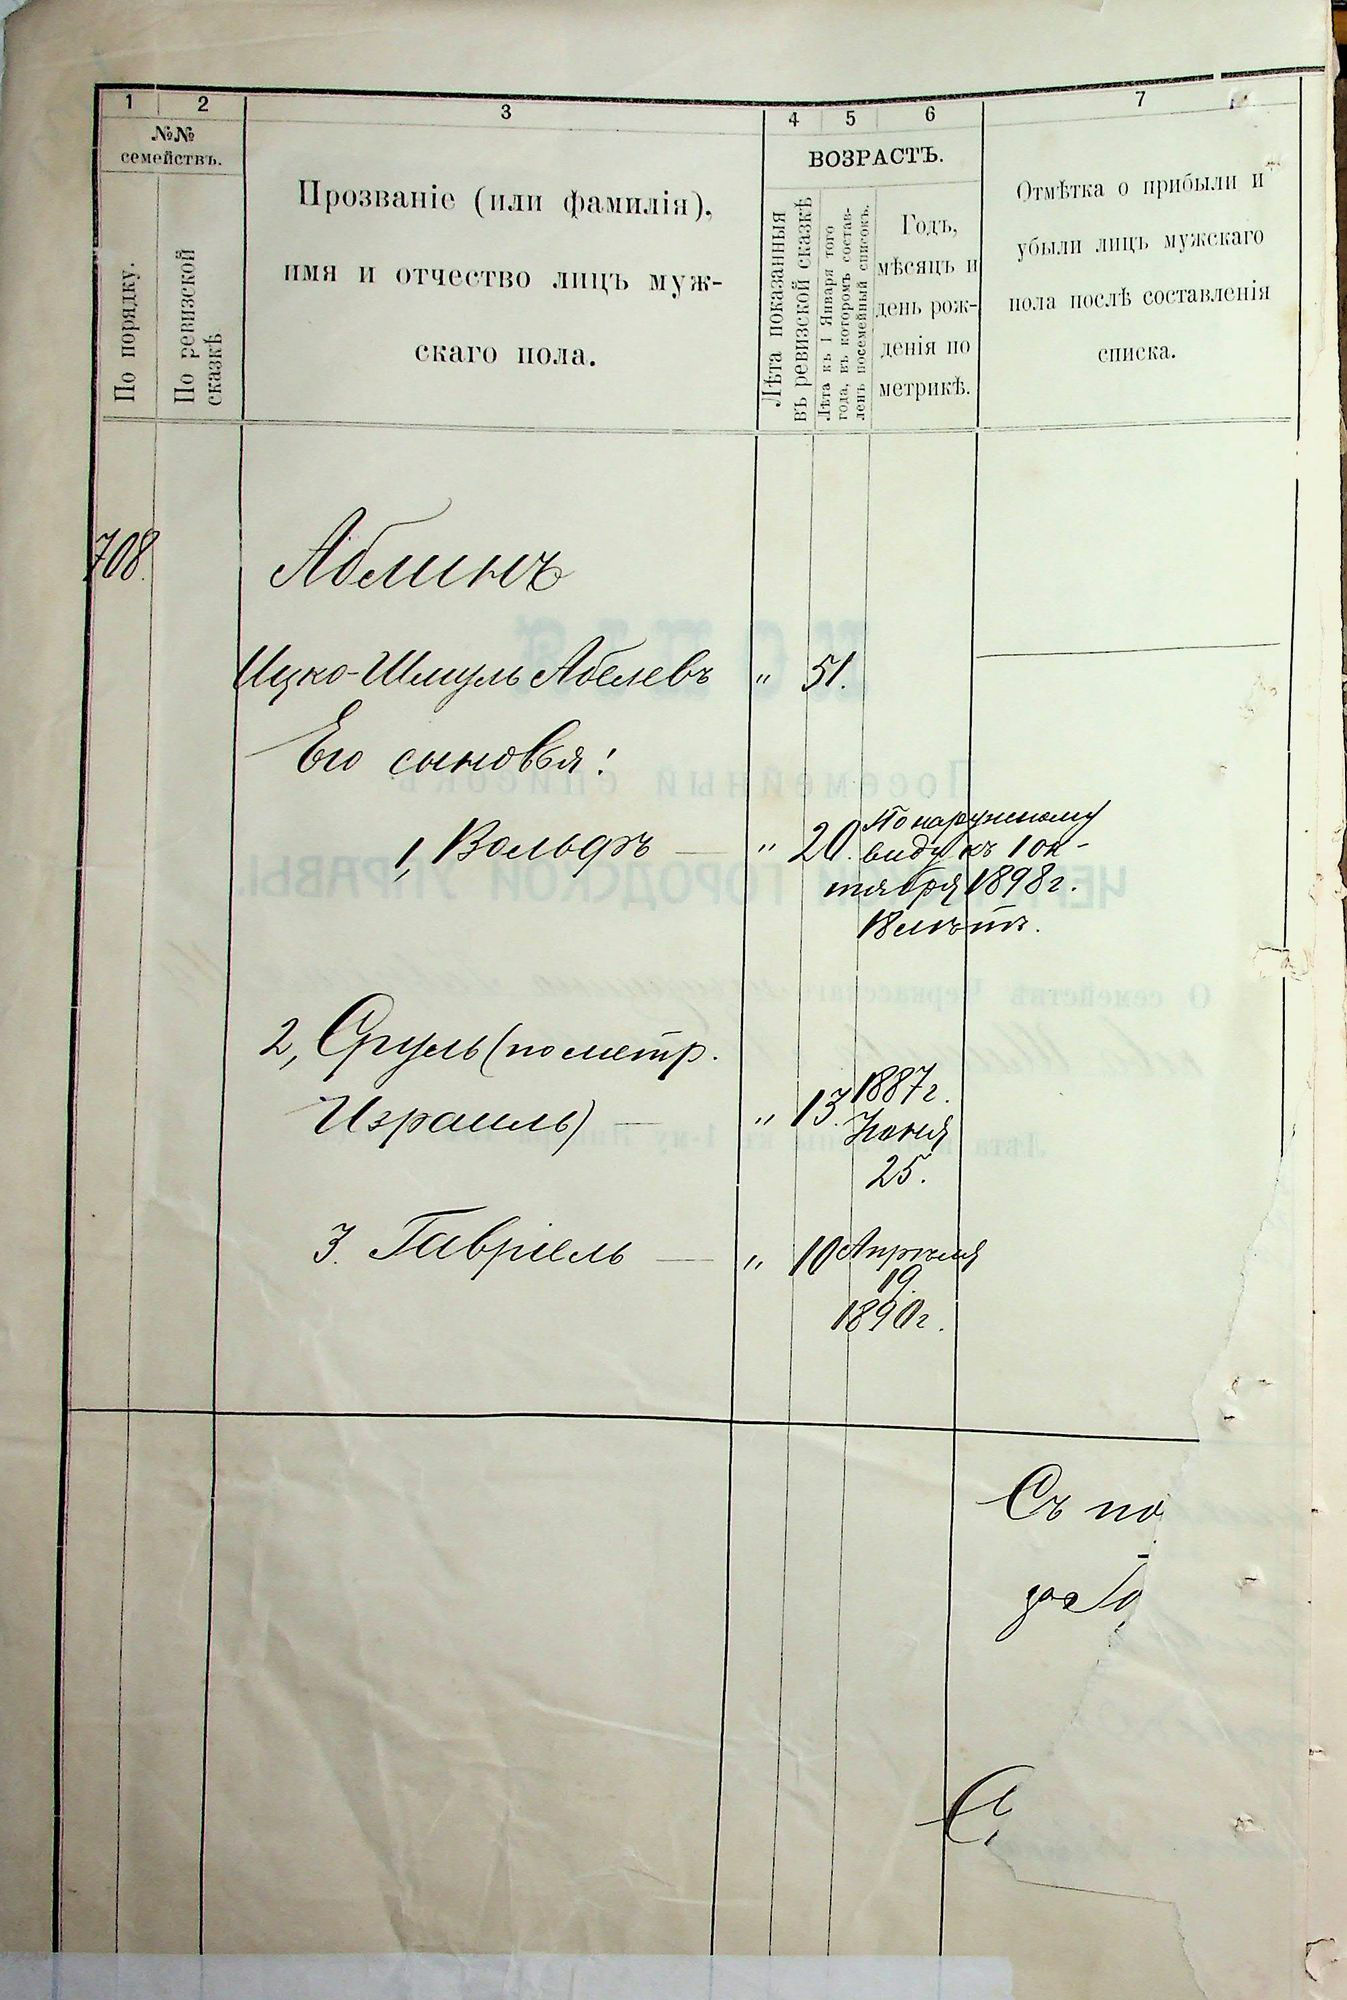 1 2 3 4 5 6 7
№№
семействъ.
По порядку.
По ревизской
сказкѣ
Прозваніе (или фамилія),
имя и отчество лицъ муж-
скаго пола.
ВОЗРАСТЪ.
Лѣта показанныя
въ ревизской сказкѣ
Лѣта къ 1 Января того
года, въ которомъ состав-
ленъ посемейный списокъ.
Годъ,
мѣсяцъ и
день рож-
денія по
метрикѣ.
Отмѣтка о прибыли и
убыли лицъ мужскаго
пола послѣ составленія
списка.
708. Аблинъ
Ицко-Шмуль Абелевъ " 51.
Его сыновья:
1, Вольфъ — " 20. По наружному
виду къ 1 ок-
тября 1898 г.
18 лѣтъ.
2, Сруль (по метр.
Израиль) — " 13. 1887 г.
Іюня
25.
3. Гавріель — " 10 Апрѣля
19.
1890 г.
Съ по